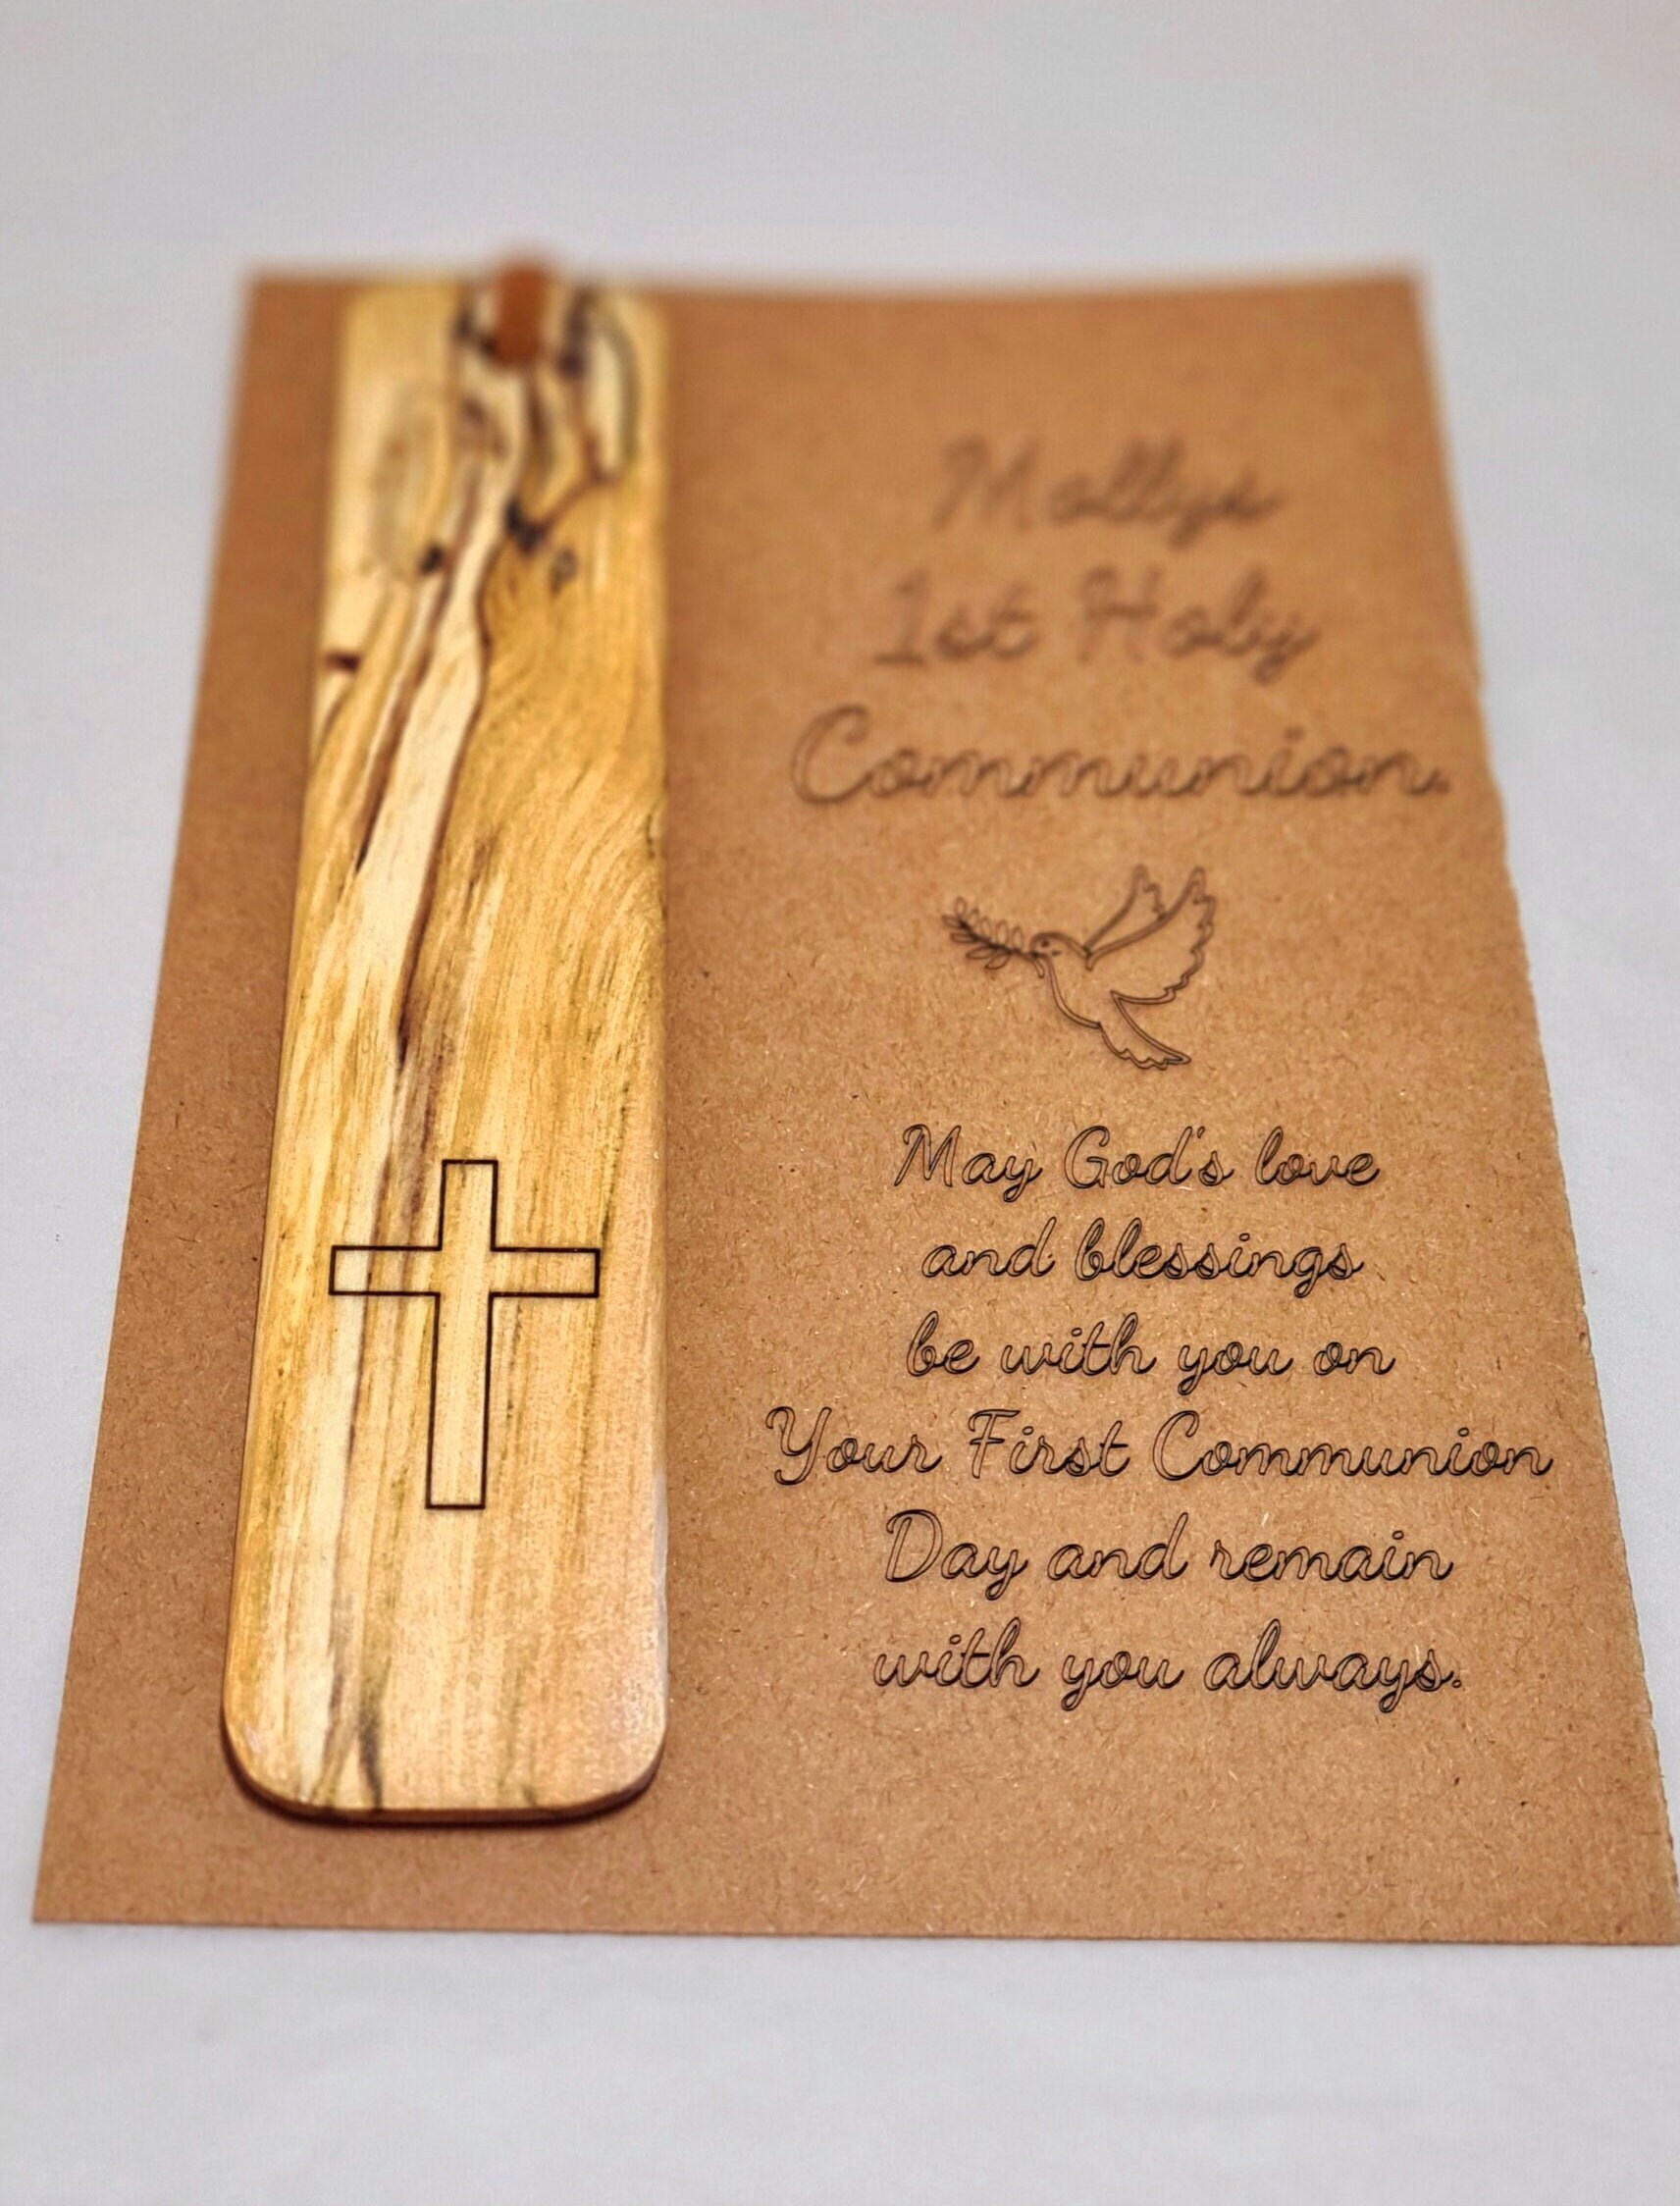 Mollys
1st Holy
Communion.
May God's love
and blessings
be with you on
Your First Communion
Day and remain
with you always.